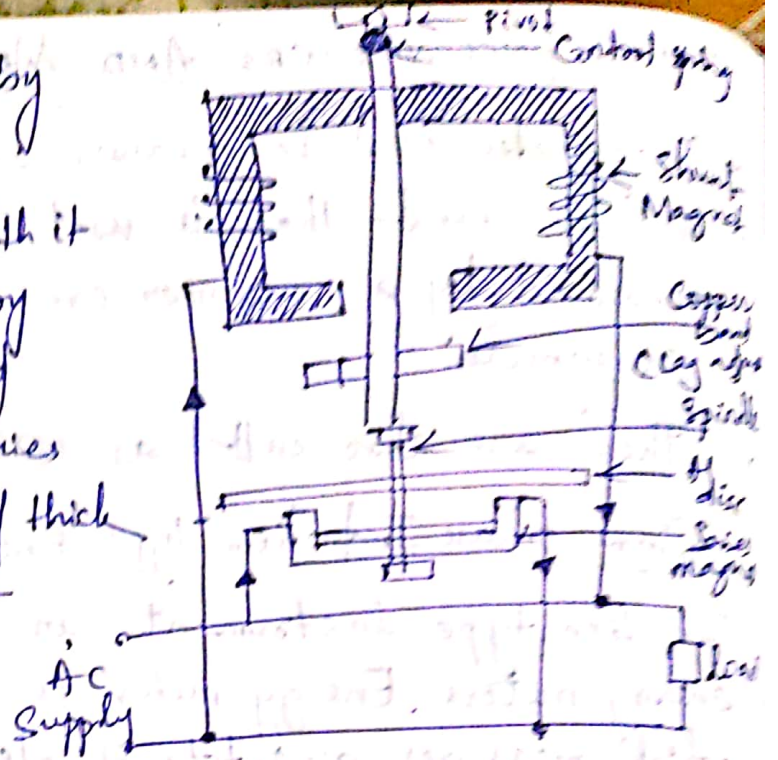 by
th it
by
ies
thick
Pivot
Control Spring
Shunt
Magnet
Copper
band
(lag adjus
Spindle
Al
disc
Series
magnet
A.C
Supply